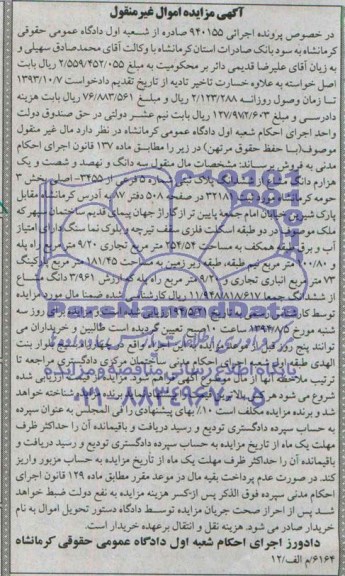 آگهی مزایده اموال غیرمنقول
در خصوص پرونده اجرائی ۹۴۰۱۵۵ صادره از شعبه اول دادگاه عمومی حقوقی
کرمانشاه به سود بانک صادرات استان کرمانشاه با وکالت آقای محمدصادق سهیلی و
به زیان آقای علیرضا قدیمی دائر بر محکومیت به مبلغ ۲/۵۵۹/۴۵۲/۰۵۵ ریال بابت
اصل خواسته به علاوه خسارت تاخیر تادیه از تاریخ تقدیم دادخواست ۱۳۹۳/۱۰/۷
تا زمان وصول روزانه ۲/۱۲۳/۲۸۸ ریال و مبلغ ۷۶/۸۸۳/۵۶۱ ریال بابت هزینه
دادرسی و مبلغ ۱۲۷/۹۷۲/۶۰۳ ریال بابت نیم عشر دولتی در حق صندوق دولت
واحد اجرای احکام شعبه اول دادگاه عمومی کرمانشاه در نظر دارد مال غیر منقول
موصوف(با حفظ حقوق مرتهن) در زیر را مطابق ماده ۱۳۷ قانون اجرای احکام
مدنی به فروش برساند: مشخصات مال منقول سه دانگ و نهصد و شصت و یک
هزارم دانگ مشاع از ششدانگ پلاک ثبتی شماره ۵ فرعی از ۳۴۵۵- اصلی بخش ۳
حومه کرمانشاه مورد ثبت ۳۲۱۸۷ در صفحه ۵۰۸ دفتر ۰۸۷ به آدرس کرمانشاه مقابل
پارک شیرین خیابان امام جمعه پایین تر از گاراژ جهان پیمای قدیم ساختمان سپهر که
ملک موصوف در دو طبقه اسکلت فلزی سقف تیرچه و بلوک نما سنگ دارای امتیاز
آب و برق طبقه همکف به مساحت ۲۵۴/۵۴ متر مربع تجاری ۹/۲۰ متر مربع راه پله
و ۱۰۰/۸۰ متر مربع نیم طبقه، طبقه زیر زمین به مساحت ۱۸۱/۴۵ متر مربع پارکینگ
۷۳ متر مربع انباری تجاری و ۹/۲۰ متر مربع راه پله که ارزش ۳/۹۶۱ دانگ مشاع
از ششدانگ جمعا ۱۱/۹۴۸/۸۱۸/۶۱۷ ریال کارشناسی شده ضمنا مال مورد مزایده
توسط
شنبه مورخ ۱۳۹۴/۸/۵ ساعت ۱۰ صبح تعیین گردیده است طالبین و خریداران می
توانند پنج روز قبل از
الهدی طبقه اول شعبه اجرای احکام مدنی ساختمان مرکزی دادگستری مراجعه تا
ترتیب ملاحظه آنها از مال موضوع آگهی فراهم شود. مزایده از قیمت ارزیابی شده
شروع می شود
شد و برنده مزایده مکلف است ۱۰٪ بهای پیشنهادی را فی المجلس به عنوان سپرده
به حساب سپرده دادگستری تودیع و رسید دریافت و باقیمانده آن را حداکثر ظرف
مهلت یک ماه از تاریخ مزایده به حساب سپرده دادگستری تودیع و رسید دریافت و
باقیمانده آن را حداکثر ظرف مهلت یک ماه از تاریخ مزایده به حساب مزبور واریز
کند. در صورت عدم پرداخت بقیه مال در موعد مقرر مطابق ماده ۱۲۹ قانون اجرای
احکام مدنی سپرده فوق الذکر پس از کسر هزینه مزایده به نفع دولت ضبط خواهد
شد پس از احراز صحت جریان مزایده توسط دادگاه دستور تحویل اموال به نام
خریدار صادر می شود. هزینه نقل و انتقال برعهده خریدار است.
دادورز اجرای احکام شعبه اول دادگاه عمومی حقوقی کرمانشاه
۶۱۶۴/م الف/۱۲
پایگاه اطلاع رسانی مناقصه و مزایده
۰۲۱-۸۸۳۴۹۶۷۰-۵